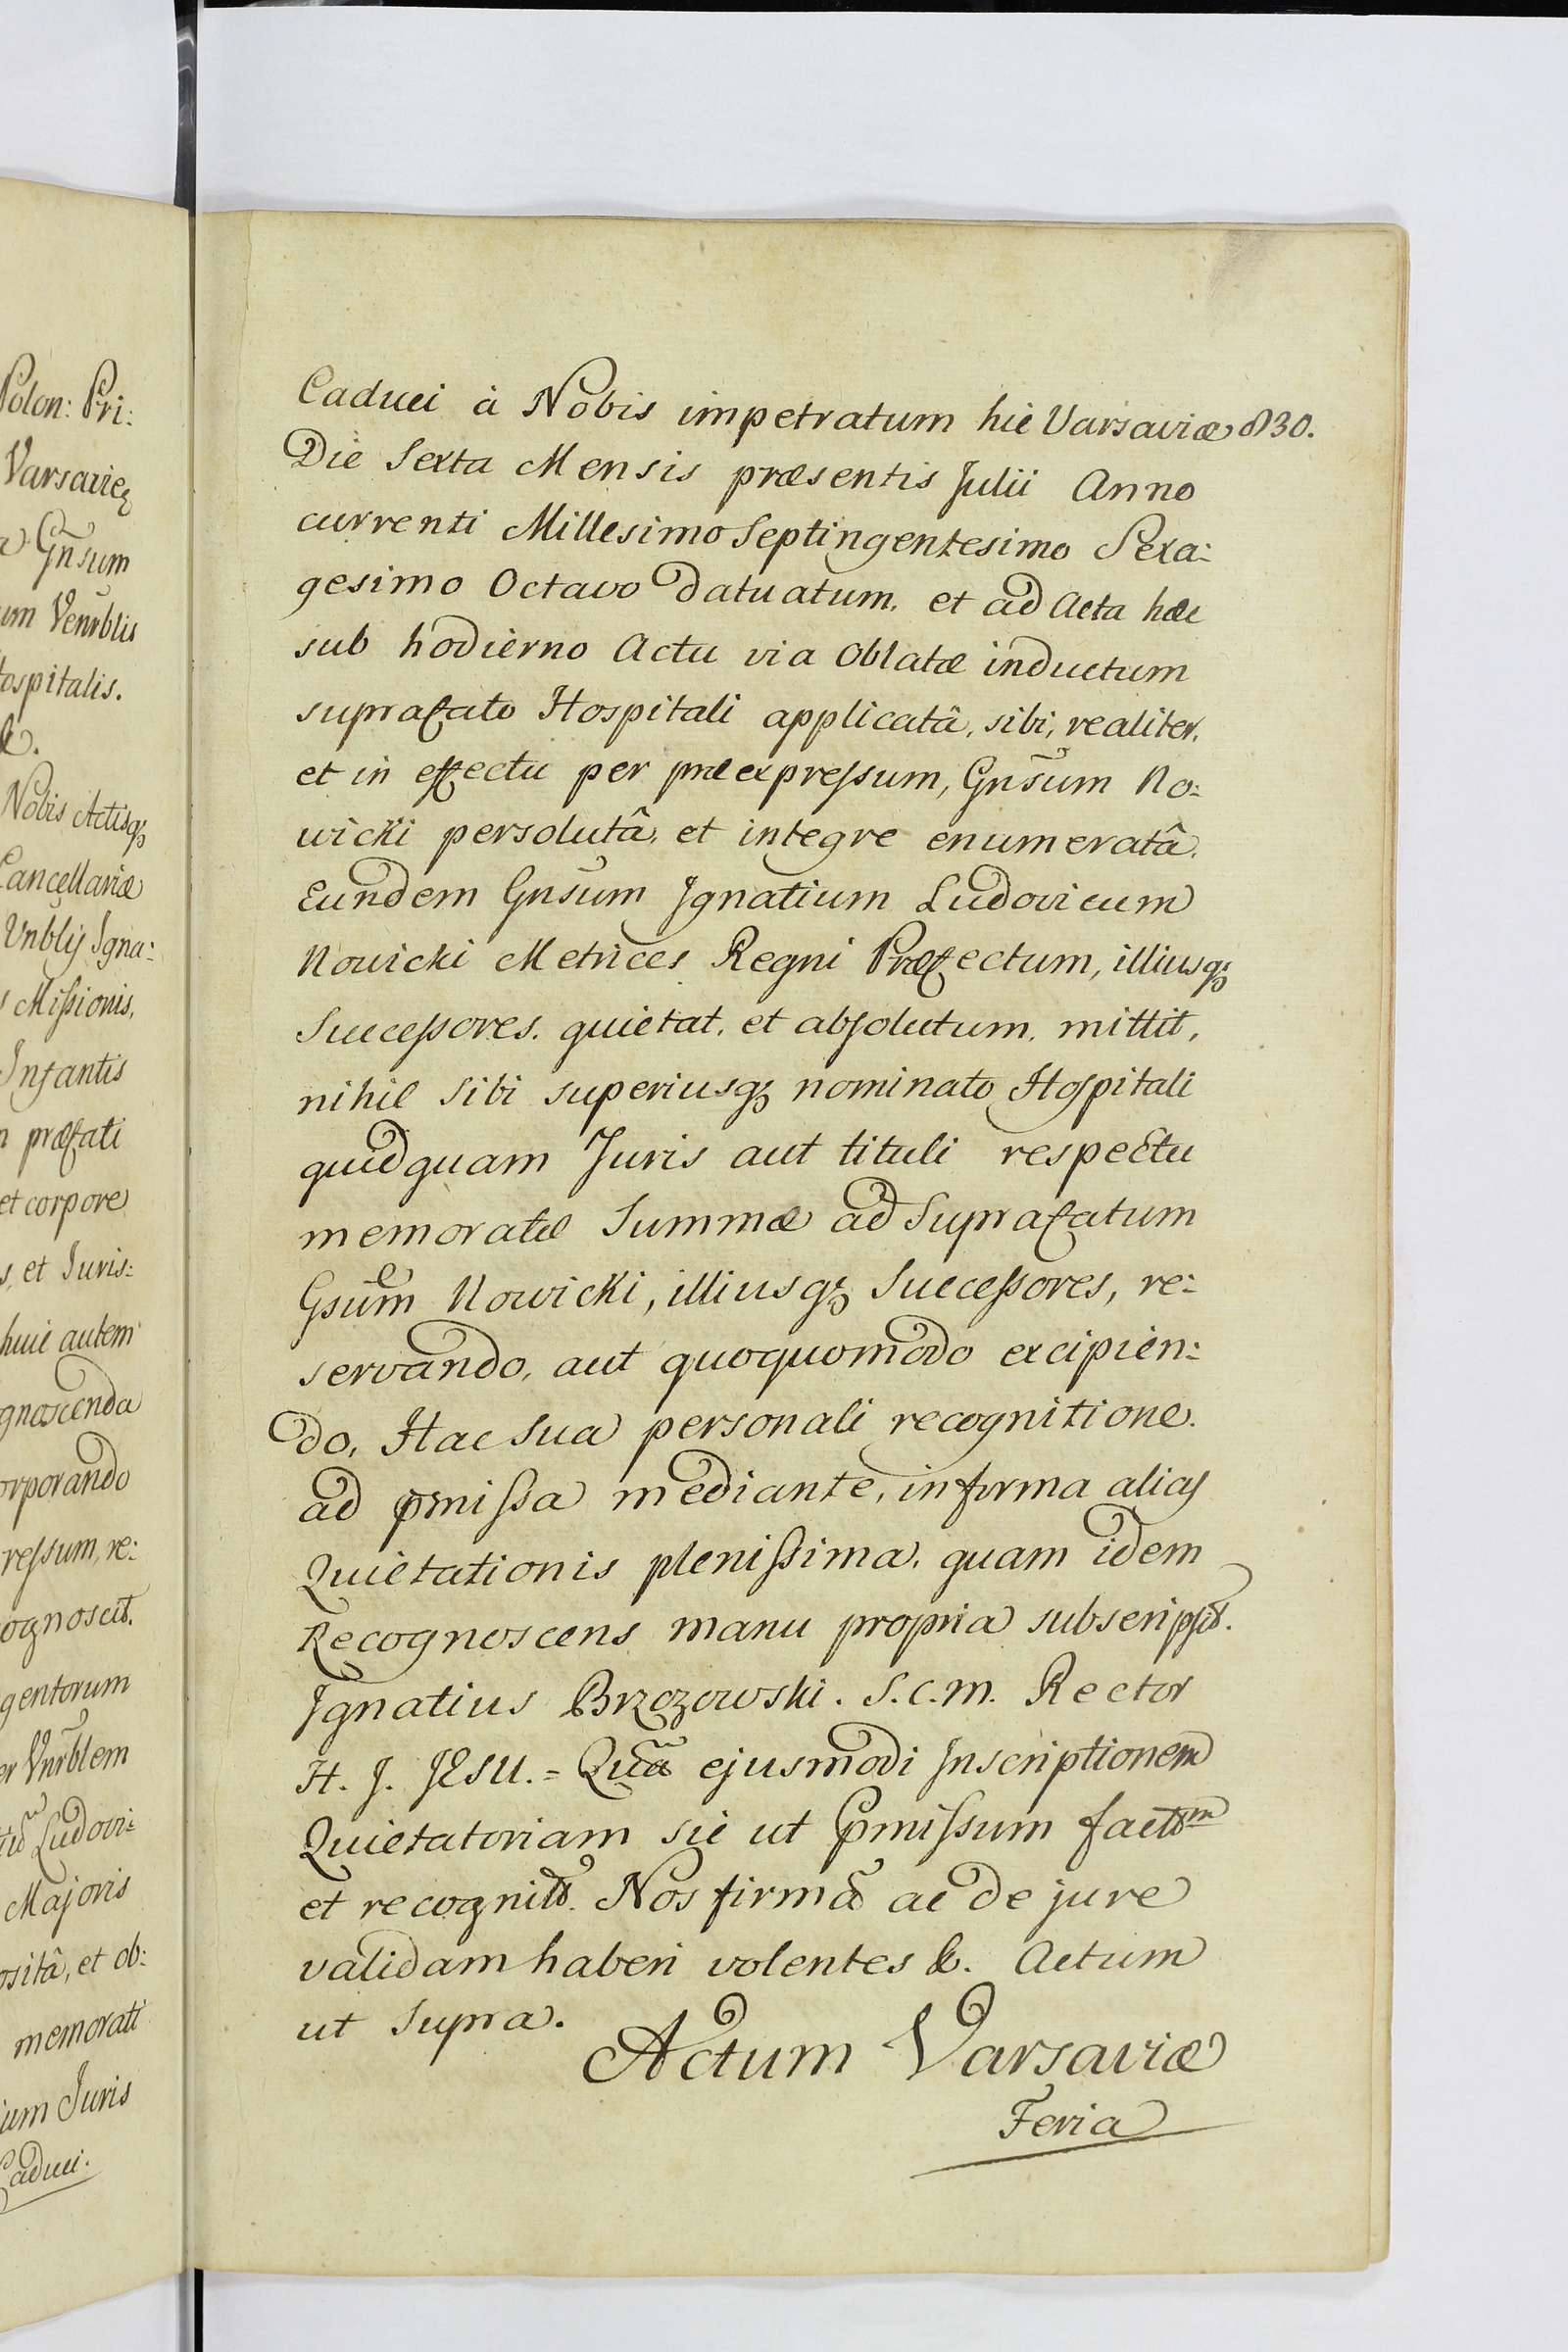 Polon: Pri:
Varsavieꝫ
Gn̄sum
um Venrblis
ospitalis.
Nobis Actisqꝫ
Cancellariæ
Vnblis Igna:
s Missionis,
Infantis
præfati
et corpore
s, et Juris:
huic autem
gnoscenda
orporando
ressum, re:
ognoscit.
gentorum
er Vnrblem
Ludovi:
Majoris
ositâ, et ob:
memorati
ium Juris
Caduci.
Caduci à Nobis impetratum hic Varsaviæ 830.
Die Sexta Mensis præsentis Julii Anno
currenti Millesimo Septingentesimo Sexa:
gesimo Octavo datuatum, et ad Acta hæc
sub hodierno Actu via Oblatæ inductum
suprafato Hospitali applicatâ, sibi, realiter,
et in effectu per præexpressum, Gn̄sum No:
wicki persolutâ, et integre enumeratâ,
Eundem Gn̄sum Ignatium Ludovicum
Nowicki Metrices Regni Præfectum, illiusqꝫ
Successores, quietat, et absolutum, mittit,
nihil sibi superiusqꝫ nominato Hospitali
quidquam Juris aut tituli respectu
memoratæ Summæ ad Suprafatum
Gsum̄ Nowicki, illiusqꝫ Successores, re:
servando, aut quoquomodo excipien:
do, Hac sua personali recognitione
ad pmissa mediante, in forma alias
Quietationis plenissima, quam idem
Recognoscens manu propria subscripsit.
Ignatius Brzozowski. S.C.M. Rector
H. J. JESU. = Quā ejusmodi Inscriptionem
Quietatoriam sic ut Pmissum factm
et recognit. Nos firmā ac de jure
validam haberi volentes &. Actum
ut Supra.
Actum Varsaviæ
Feria